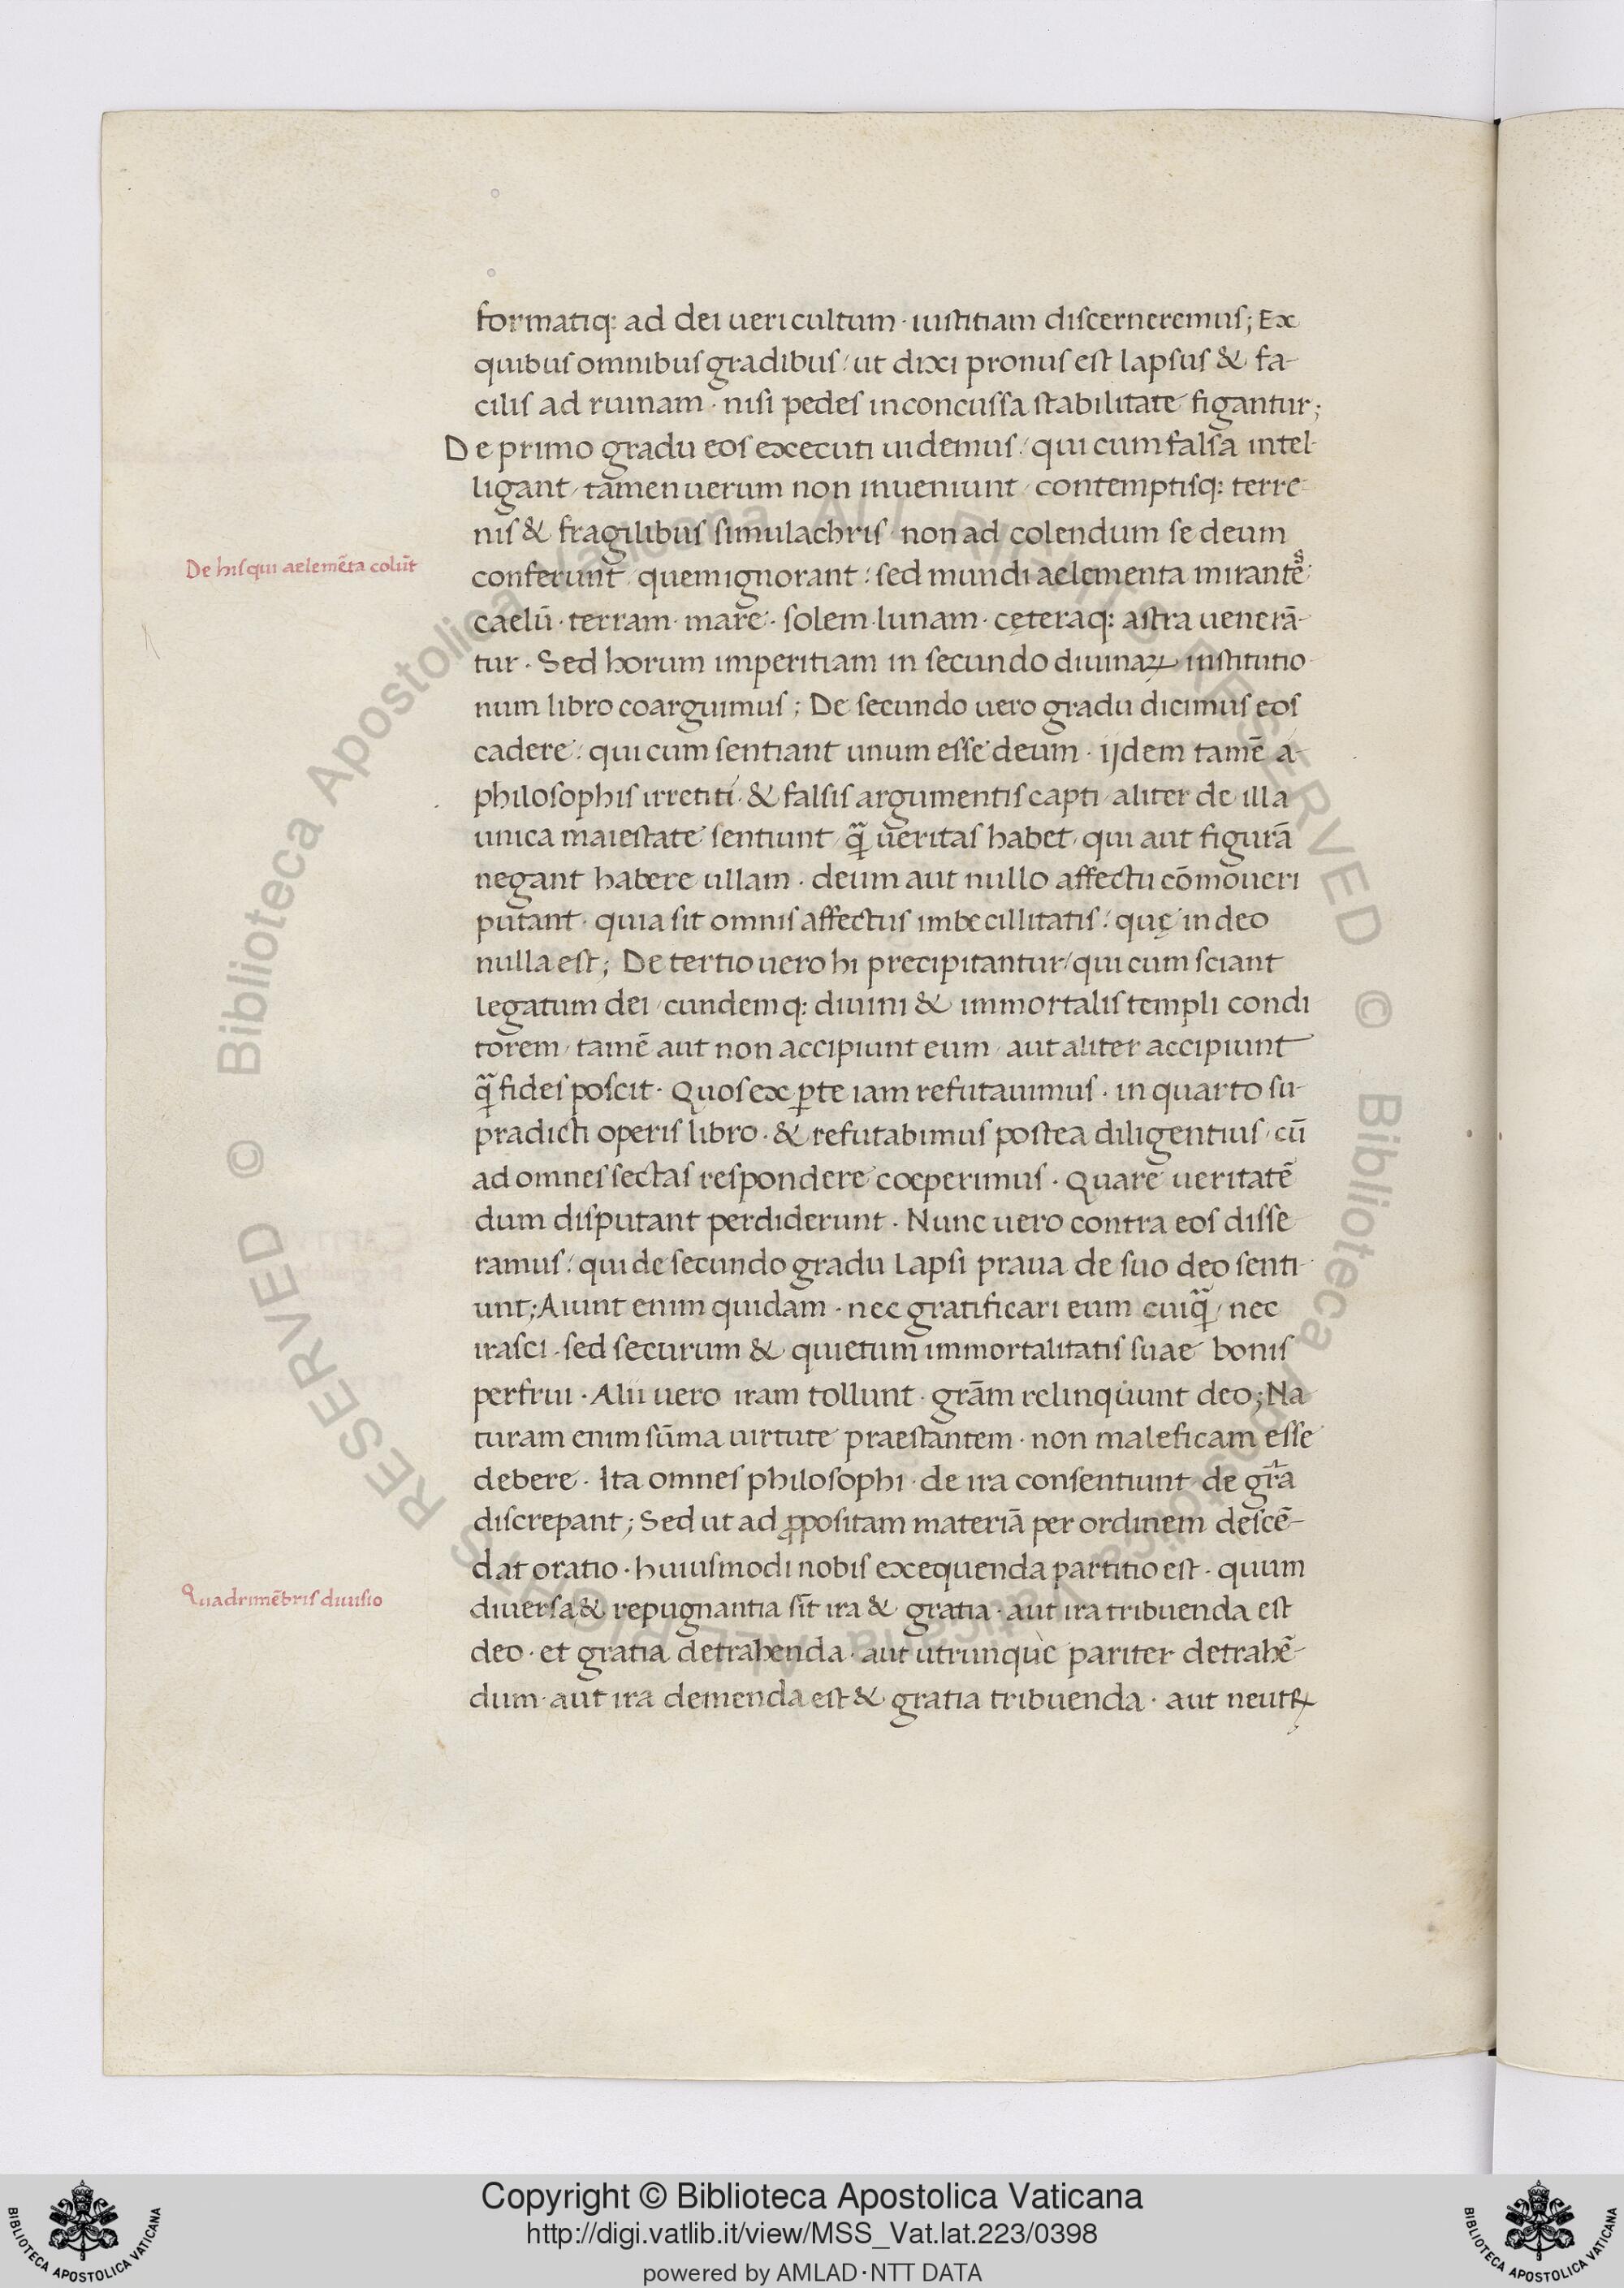 formatiq: ad dei ueri cultum · iustitiam discerneremus; Ex
quibus omnibus gradibus / ut dixi pronus est lapsus & fa-
cilis ad ruinam · nisi pedes inconcussa stabilitate figantur;
De primo gradu eos excecuti uidemus / qui cum falsa intel-
ligant / tamen uerum non inueniunt / contemptisq: terre-
nis & fragilibus simulachris · non ad colendum se deum
De his qui aelemēta colūt
conferunt / quem ignorant : sed mundi aelementa mirantes
caelū · terram · mare · solem · lunam · cęteraq: astra uenerā-
tur · Sed horum imperitiam in secundo diuinaꝝ institutio
num libro coarguimus; De secundo uero gradu dicimus eos
cadere : qui cum sentiant unum esse deum · ijdem tamē a
philosophis irretiti · & falsis argumentis capti / aliter de illa
unica maiestate sentiunt / qᷓ ueritas habet / qui aut figurā
negant habere ullam · deum aut nullo affectu cōmoueri
putant · quia sit omnis affectus imbecillitatis : quę in deo
nulla est; De tertio uero hi precipitantur / qui cum sciant
legatum dei / eundemq: diuini & immortalis templi condi
torem / tamē aut non accipiunt eum / aut aliter accipiunt
qᷓ fides poscit · Quos ex ꝑte iam refutauimus · in quarto su-
pradicti operis libro · & refutabimus postea diligentius / cū
ad omnes sectas respondere coeperimus · Quare ueritatē
dum disputant perdiderunt · Nunc uero contra eos disse
ramus : qui de secundo gradu lapsi praua de suo deo senti
unt; Aiunt enim quidam · nec gratificari eum cuiqᷓ / nec
irasci · sed securum & quietum immortalitatis suae bonis
perfrui · Alii uero iram tollunt · grām relinquunt deo; Na
turam enim sūma uirtute praestantem · non maleficam esse
debere · Ita omnes philosophi · de ira consentiunt · de grā
discrepant; Sed ut ad ꝓpositam materiā per ordinem descē-
dat oratio · huiusmodi nobis exequenda partitio est · quum
Quadrimēbris diuisio
diuersa & repugnantia sīt ira & gratia · aut ira tribuenda est
deo · et gratia detrahenda · aut utrunque pariter detrahē-
dum · aut ira demenda est & gratia tribuenda · aut neutꝝ
© Biblioteca Apostolica Vaticana ALL RIGHTS RESERVED © Biblioteca Apostolica Vaticana ALL RIGHTS RESERVED
BIBLIOTECA APOSTOLICA VATICANA
Copyright © Biblioteca Apostolica Vaticana
http://digi.vatlib.it/view/MSS_Vat.lat.223/0398
powered by AMLAD·NTT DATA
BIBLIOTECA APOSTOLICA VATICANA